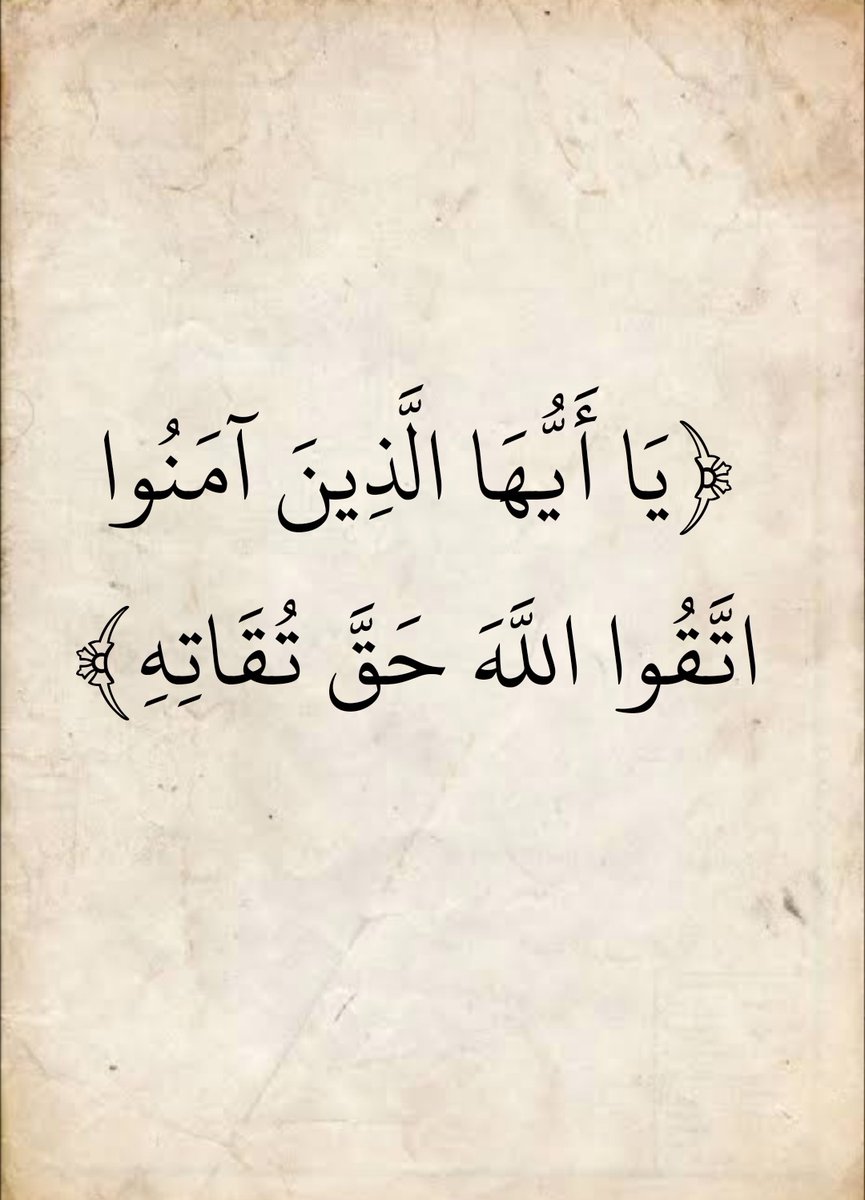 ﴿يَا أَيُّهَا الَّذِينَ آمَنُوا
اتَّقُوا اللَّهَ حَقَّ تُقَاتِهِ﴾